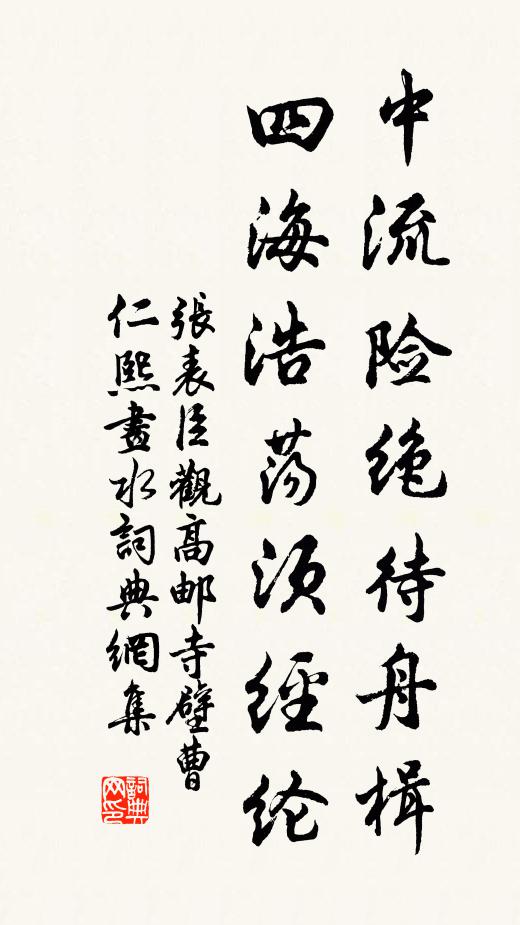 中流险绝待舟楫
四海浩荡须經纶
張表臣觀高邮寺壁曹
仁熙畫水詞典網集
詞典网印